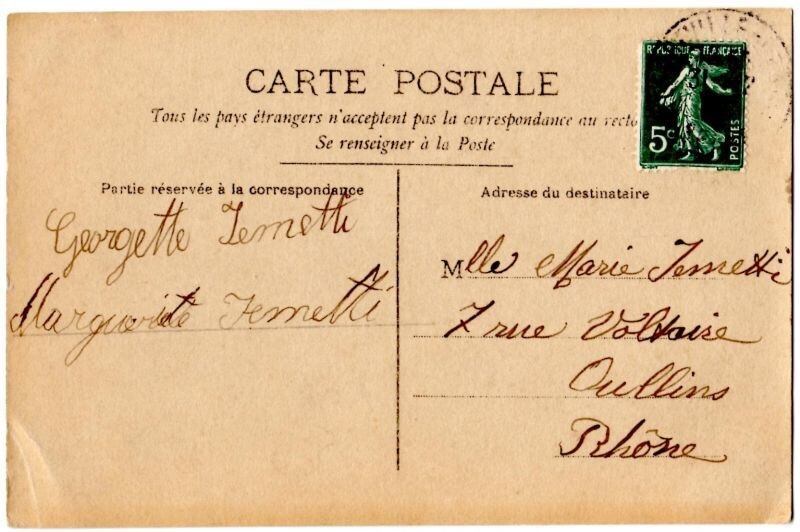 CARTE POSTALE
Tous les pays étrangers n'acceptent pas la correspondance au recto
Se renseigner à la Poste
REPUBLIQUE FRANÇAISE
5c
POSTES
Partie réservée à la correspondance
Georgette Jemetti
Marguerite Jemetti
Adresse du destinataire
Mlle Marie Jemetti
7 rue Voltaire
Oullins
Rhône